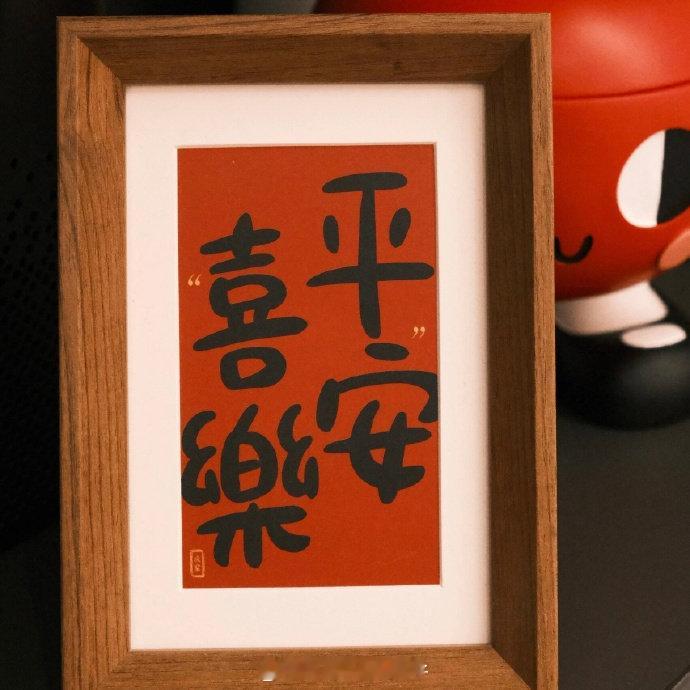 平安”
“喜樂